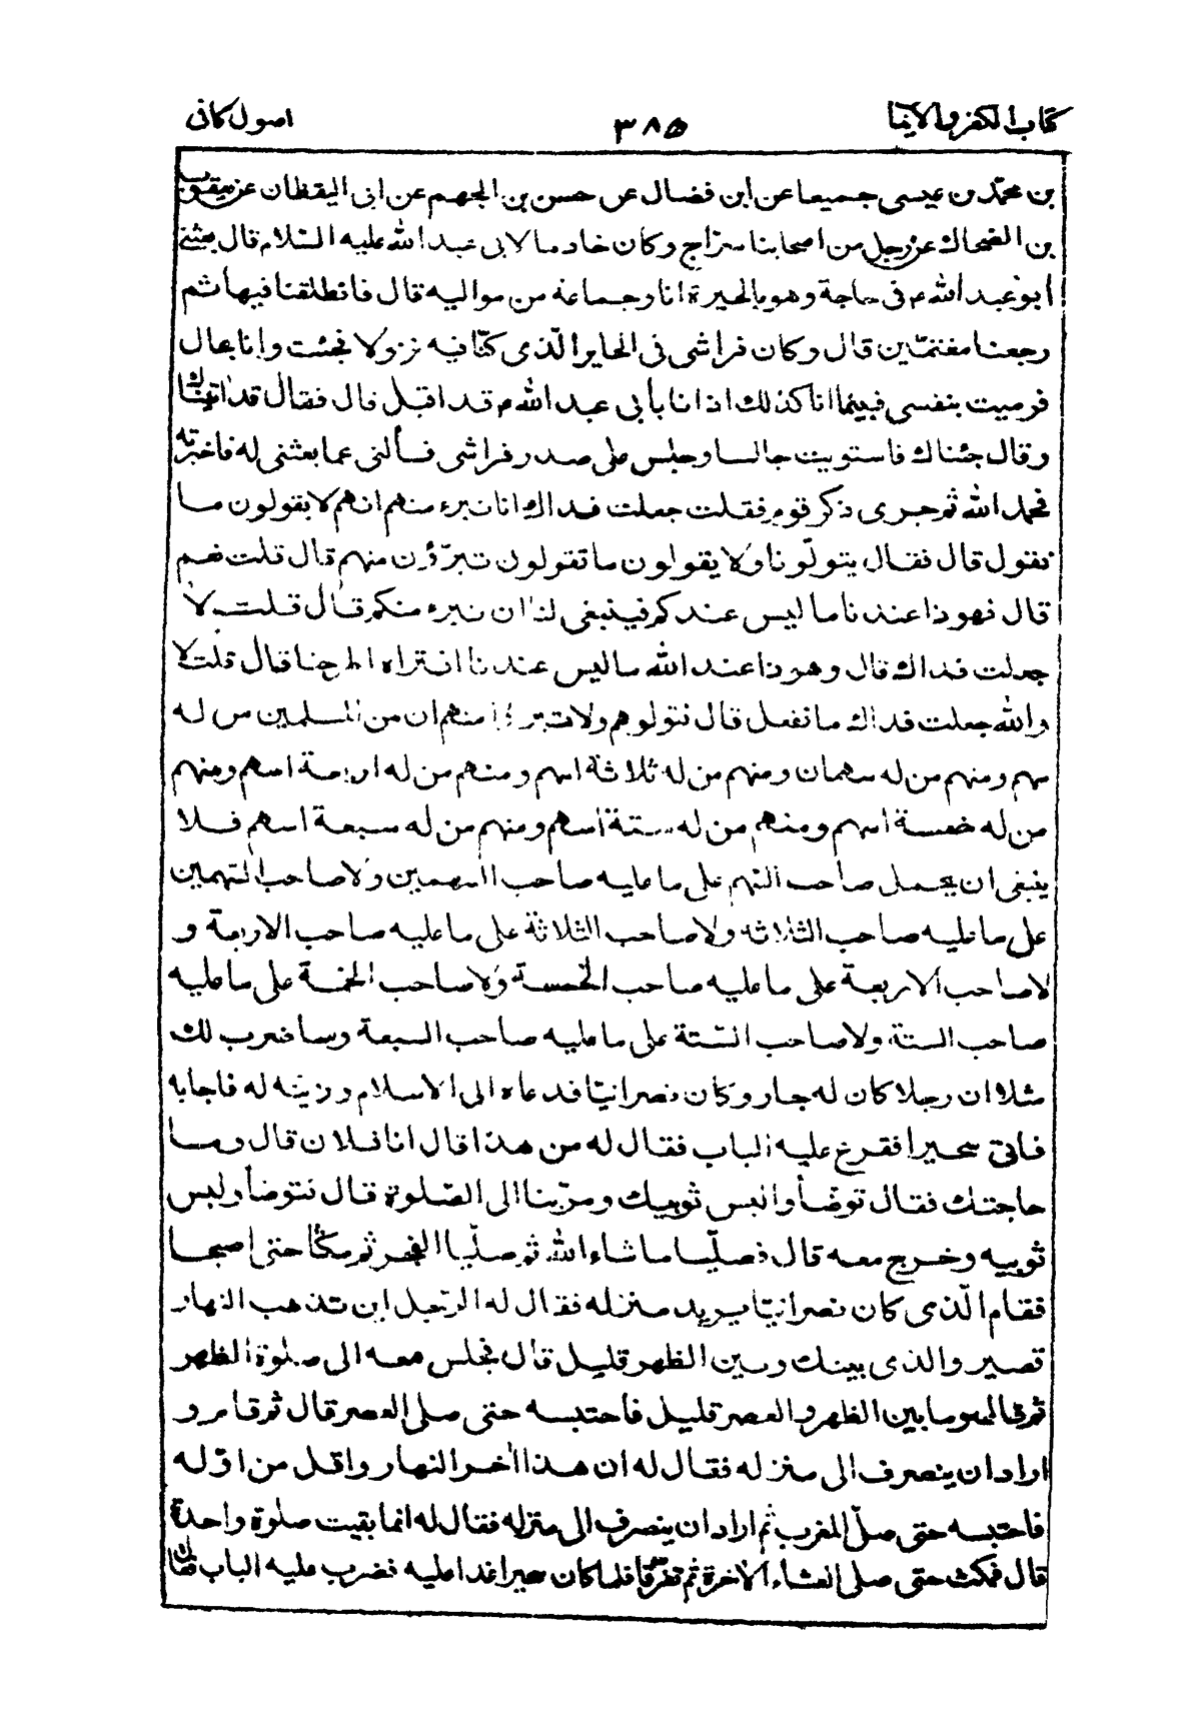 كتاب الكفر والايما
٣٨٥
اصول كافى
بن محمّد بن عيسى جميعا عن ابن فضال عن حسن بن الجهم عن ابى اليقظان عن يعقوب
بن الضحاك عن رجل من اصحابنا سراج وكان خادما لابى عبد الله عليه السّلام قال بعثنى
أبو عبد الله ع فى حاجة وهو بالحيرة انا وجماعة من مواليه قال فانطلقنا فيها ثم
رجعنا مغتمّين قال وكان فراشى فى الحاير الّذى كنّا فيه نزولا فجئت وانا بحال
فرميت بنفسى فبينما انا كذلك اذ انا بأبى عبد الله ع قد اقبل قال فقال قد اتيناك
وقال جئناك فاستويت جالسا وجلس على صدر فراشى فسألنى عما بعثنى له فاخبرته
فحمد الله ثم جرى ذكر قوم فقلت جعلت فداك انا نبرء منهم انهم لا يقولون ما
نقول قال فقال يتولّونا ولا يقولون ما تقولون تبرّؤن منهم قال قلت نعم
قال فهو ذا عندنا ما ليس عندكم فينبغى لنا ان نبرء منكم قال قلت لا
جعلت فداك قال وهو ذا عند الله ما ليس عندنا افتراه اطرحنا قال قلت لا
والله جعلت فداك ما نفعل قال فتولوهم ولا تبرؤا منهم ان من المسلمين من له
سهم ومنهم من له سهمان ومنهم من له ثلاثة اسهم ومنهم من له اربعة اسهم ومنهم
من له خمسة اسهم ومنهم من له ستة اسهم ومنهم من له سبعة اسهم فلا
ينبغى ان يحمل صاحب السّهم على ما عليه صاحب السهمين ولا صاحب السّهمين
على ما عليه صاحب الثلاثه ولا صاحب الثلاثة على ما عليه صاحب الاربعة و
لا صاحب الاربعة على ما عليه صاحب الخمسة ولا صاحب الخمسة على ما عليه
صاحب الستة ولا صاحب السّتة على ما عليه صاحب السبعة وساضرب لك
مثلا ان رجلا كان له جار وكان نصرانيّا فدعاه الى الاسلام وزينه له فاجابه
فاتى سحيرا فقرع عليه الباب فقال له من هذا قال انا فلان قال وما
حاجتك فقال توضّأ والبس ثوبيك ومرّ بنا الى الصّلوة قال فتوضأ ولبس
ثوبيه وخرج معه قال فصلّيا ما شاء الله ثم صلّيا الفجر ثم مكثا حتى اصبحا
فقام الّذى كان نصرانيّا يريد منزله فقال له الرّجل اين تذهب النهار
قصير والذى بينك وبين الظهر قليل قال فجلس معه الى صلوة الظهر
ثم قال وما بين الظهر والعصر قليل فاحتبسه حتى صلى العصر قال ثم قام و
اراد ان ينصرف الى منزله فقال له ان هذا اٰخر النهار واقل من اوّله
فاحتبسه حتى صلّى المغرب ثم اراد ان ينصرف الى منزله فقال له انما بقيت صلوة واحدة
قال فمكث حتى صلى العشاء الاٰخرة ثم تفرّقا فلما كان سحيرا غدا عليه فضرب عليه الباب فقال